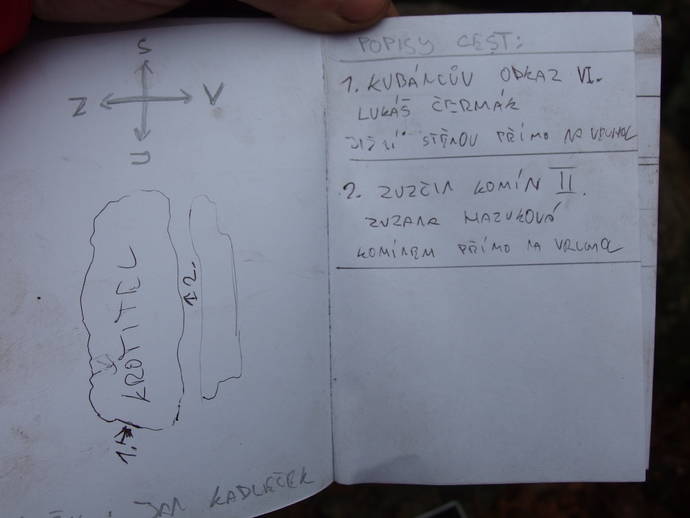 S
Z V
J
KROTITEL
1.
2.
JAN KADLEČEK
POPISY CEST:
1. KUBÁNCŮV ODKAZ VI.
LUKÁŠ ČERMÁK
JIŽNÍ STĚNOU PŘÍMO NA VRCHOL
2. ZUZČIN KOMÍN II.
ZUZANA MAZUKOVÁ
KOMÍNEM PŘÍMO NA VRCHOL